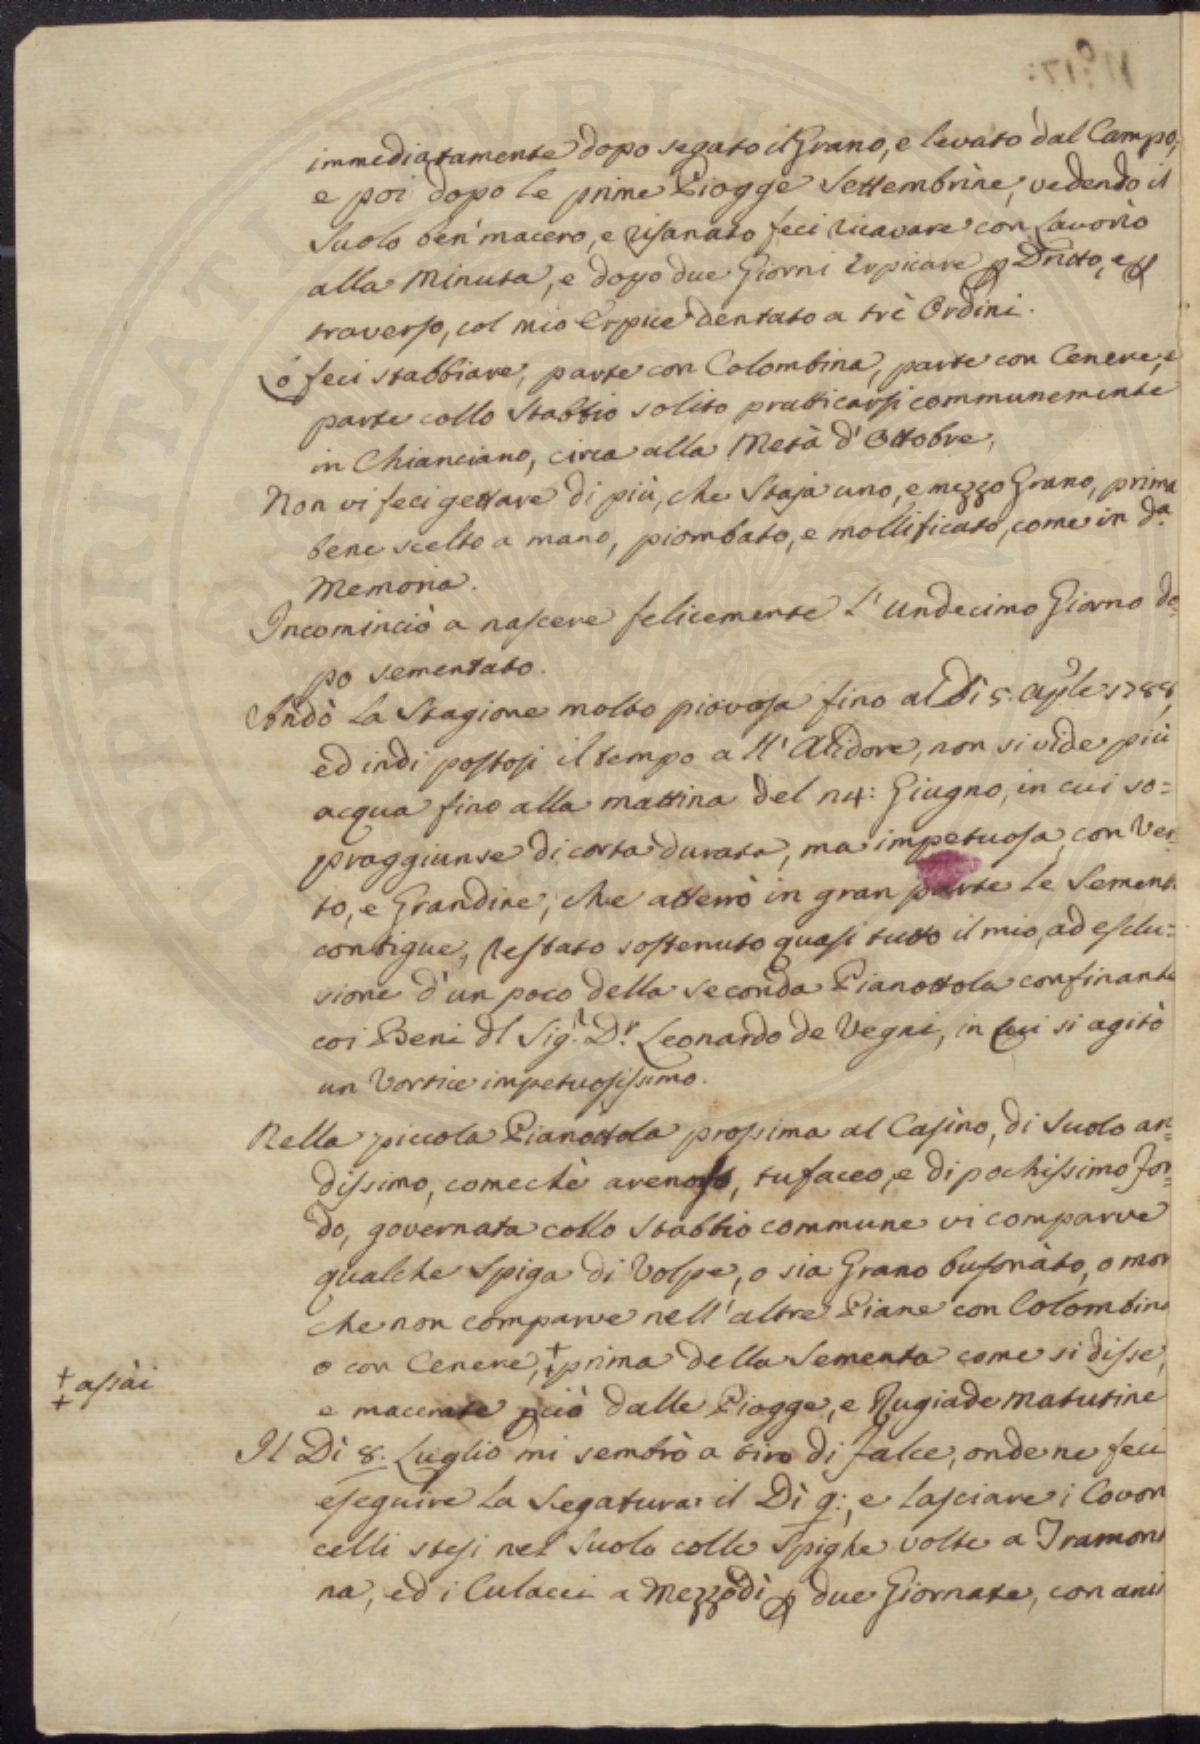 immediatamente dopo segato il Grano, e levato dal Campo,
e poi dopo le prime Piogge Settembrine, vedendo il
Suolo ben' macero, e risanato feci ricavare con Lavorio
alla Minuta, e dopo due Giorni erpicare p Dritto, e p
traverso, col mio Erpice dentato a trè Ordini.
Lo feci stabbiare, parte con Colombina, parte con Cenere, e
parte collo Stabbio solito pratticarsi communemente
in Chianciano, circa alla Metà d'Ottobre.
Non vi feci gettare di più, che Staja uno, e mezzo Grano, prima
bene scelto a mano, piombato, e mollificato, come in da.
Memoria.
Incominciò a nascere felicemente l'undecimo Giorno do=
po sementato.
Andò la Stagione molto piovosa fino al Dì 5. aple 1788,
ed indi postosi il tempo all'Alidore, non si vide più
acqua fino alla mattina del 14: Giugno, in cui so=
praggiunse di corta durata, ma impetuosa, con Ven=
to, e Grandine, che atterrò in gran parte le Sementi
contigue, restato sostenuto quasi tutto il mio, ad esclu=
sione d'un poco della seconda Pianottola confinante
coi Beni dl Sigr. Dr. Leonardo de Vegni, in cui si agitò
un Vortice impetuosissimo.
Nella piccola Pianottola prossima al Casino, di Suolo ari=
dissimo, comechè arenoso, tufaceo, e di pochissimo Fon=
do, governata collo Stabbio commune vi comparve
qualche Spiga di Volpe, o sia Grano bufonàto, o mor
che non comparve nell'altre Piane con Colombina
o con Cenere, ‡ prima della Sementa come si disse,
‡ assài
e macerate pciò dalle Piogge, e Rugiade matutine
Il Dì 8. Luglio mi sembrò a tiro di Falce, onde ne feci
eseguire la Segatura il Dì 9:, e lasciare i Covon
celli stesi nel Suolo colle Spighe volte a Tramont
na, ed i Culacci a Mezzodì p due Giornate, con